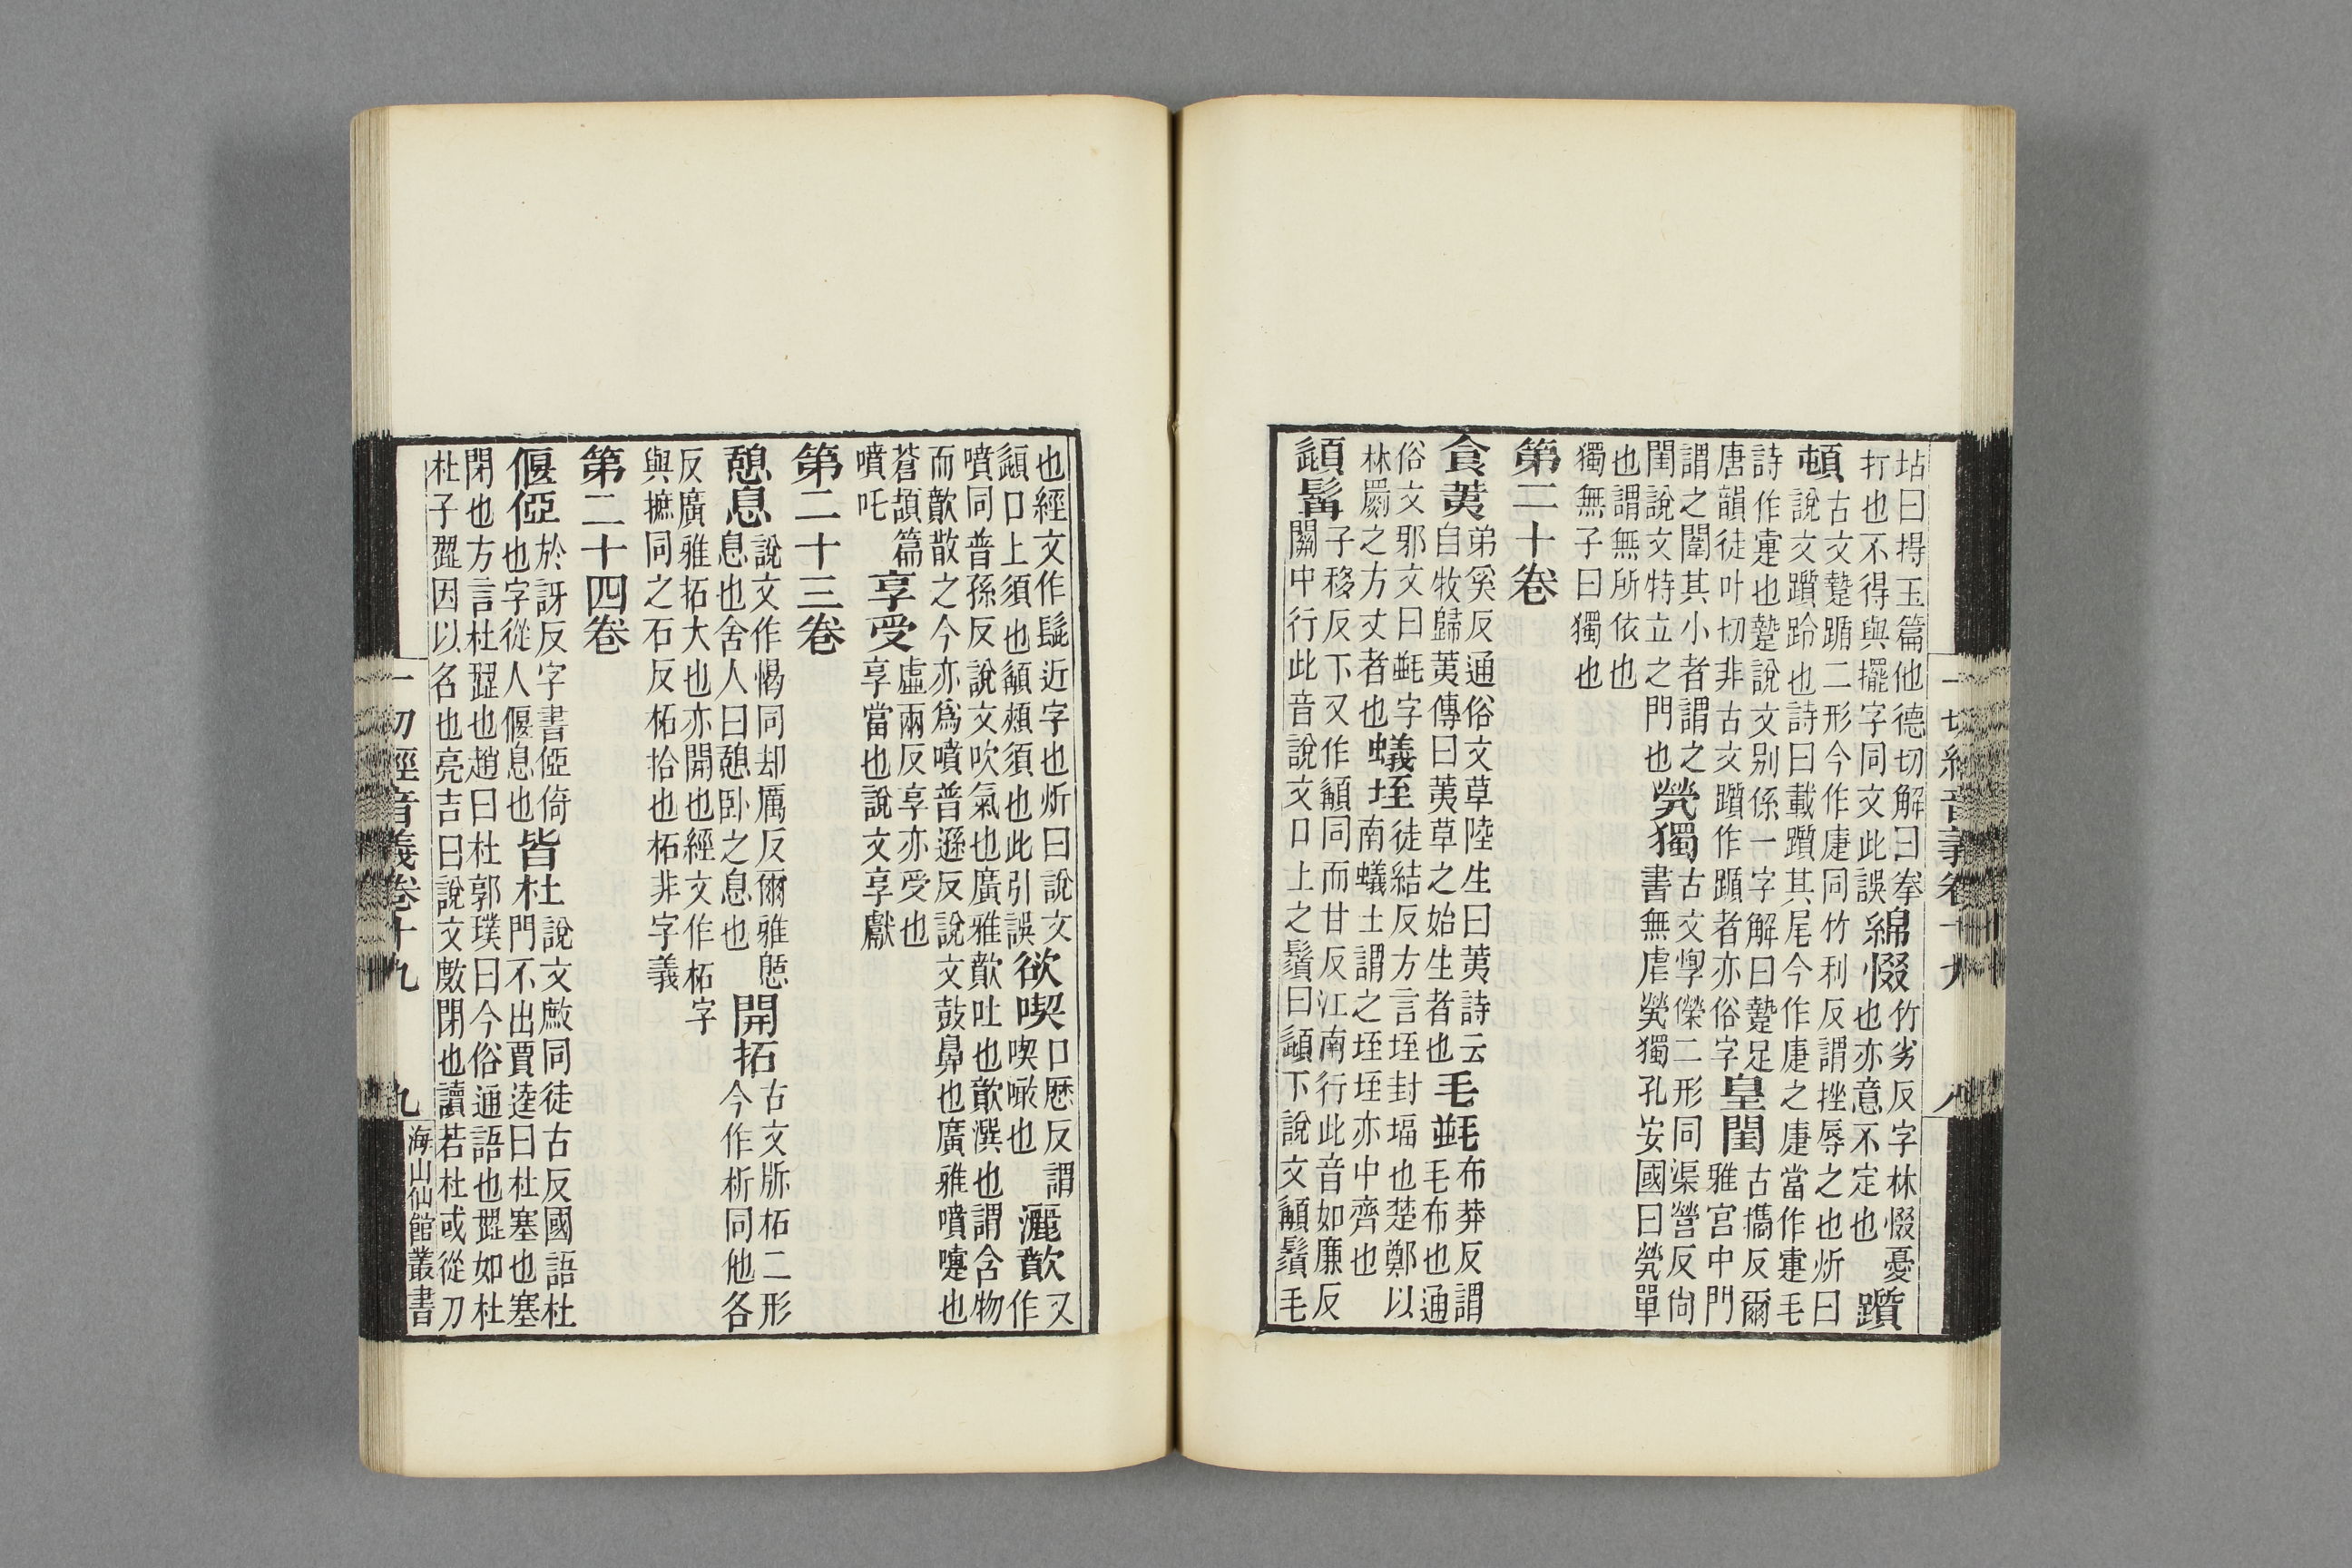 一切經音義卷十九 八
坫曰挦玉篇他德切解曰拳綿惙竹劣反字林惙憂
打也不得與擺字同文此誤 也亦意不定也 躓
頓古文疐踲二形今作疌同竹利反謂挫辱之也炘曰
說文躓跲也詩曰載躓其尾今作疌之疌當作疐毛
詩作疐也疐說文别係一字解曰疐足皇閨古攜反爾
唐韻徒叶切非古文躓作蹎者亦俗字 雅宫中門
謂之闈其小者謂之 煢獨古文惸傑二形同渠營反尙
閨說文特立之門也 書無虐煢獨孔安國曰煢單
也謂無所依也
獨無子曰獨也
第二十卷
食荑弟奚反通俗文草陸生曰荑詩云毛毾布莽反謂
自牧歸荑傳曰荑草之始生者也 毛布也通
俗文邪文曰毾字蟻垤徒結反方言垤封堛也楚鄭以
林罽之方文者也 南蟻土謂之垤垤亦中齊也
頿髯子移反下又作䫇同而甘反江南行此音如廉反
關中行此音說文口上之鬚曰頿下說文䫇鬚毛
也經文作髭近字也炘曰說文欲喫口歷反謂灑歕又
頿口上須也䫇頰須也此引誤 喫噉也 作
噴同普孫反說文吹氣也廣雅歕吐也歕潠也謂含物
而歕散之今亦爲噴普遜反說文鼓鼻也廣雅噴嚏也
蒼頡篇享受虛兩反享亦受也
噴吒 享當也說文享獻
第二十三卷
憩息說文作愒同却厲反爾雅憩開拓古文㡿柘二形
息也舍人曰憩卧之息也 今作斥同他各
反廣雅拓大也亦開也經文作柘字
與摭同之石反柘拾也柘非字義
第二十四卷
偃俹於訝反字書俹倚皆杜說文敷同徒古反國語杜
也字從人偃息也 門不出賈逵曰杜塞也塞
閉也方言杜歰也趙曰杜郭璞曰今俗通語也歰如杜
杜子歰因以名也亮吉曰說文敷閉也讀若杜或從刀
一切經音義卷十九 九 海山仙館叢書